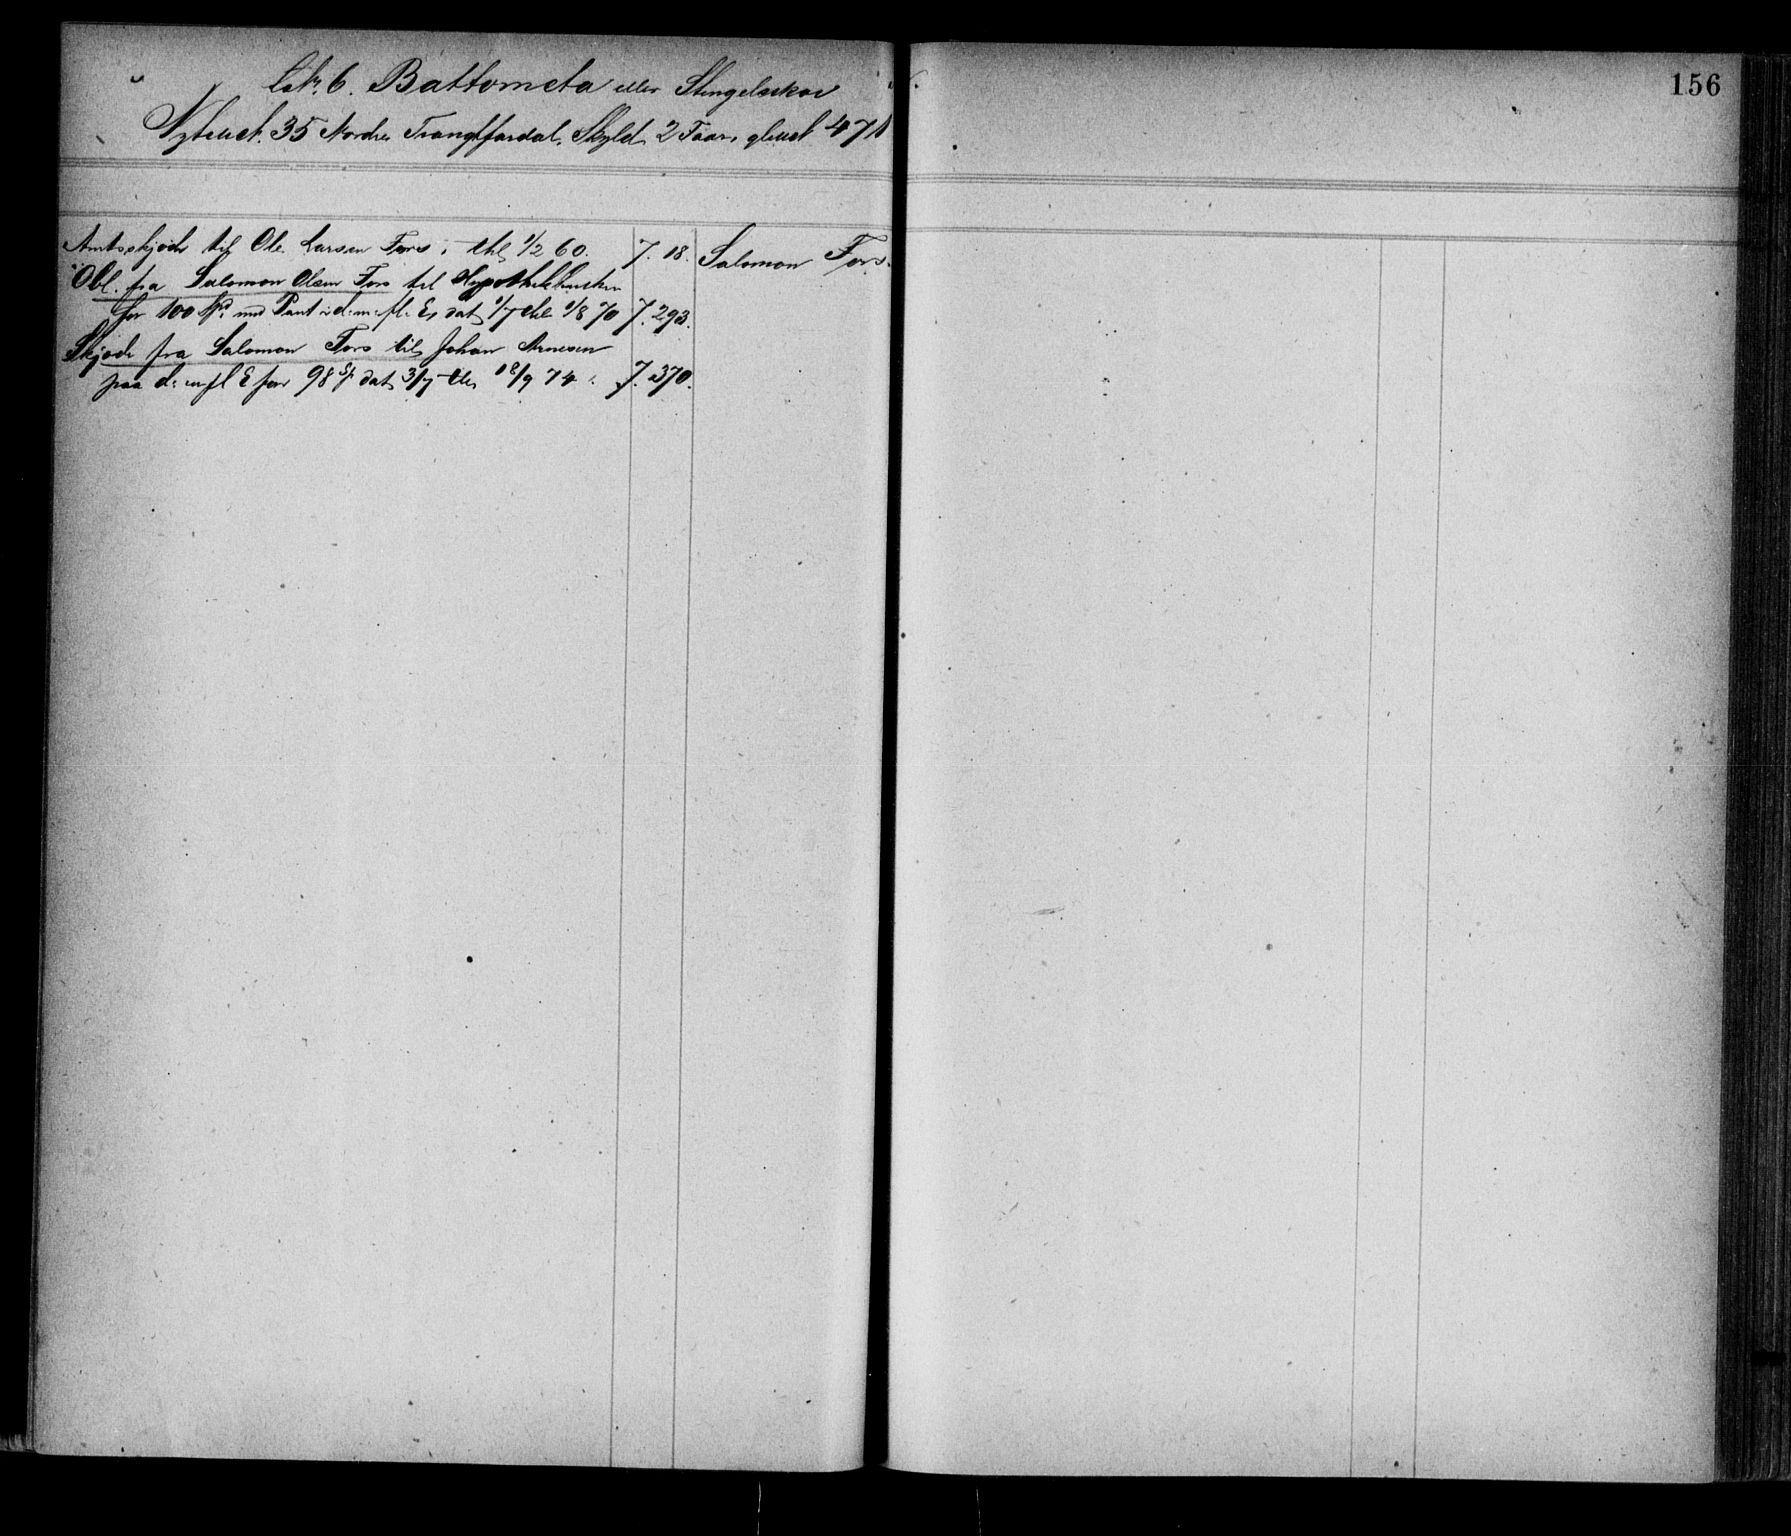 156
6. Battometa eller Stengelsskov
35 Nordre Skyld 2 glmt 471
Amtsskjøde til Ole Larsen Fors thl 1/2 60. 7. 18. Salomon Fors.
Obl. fra Salomon Olsen Fors til Hypothekbanken
for 100 Spd med Pant i d: m: fl: E, dat 1/7 thl 1/8 70 7. 293.
Skjøde fra Salomon Fors til Johan Arnesen
paa d: m fl E for 98 Sp dat 3/7 thl 18/9 74. 7. 370.